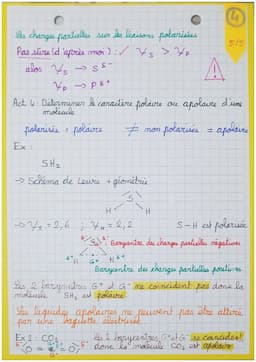 4
5/5
Les charges partielles sur les liaisons polarisées
Pas sûre (d'après moi) : ✓ χS > χP
alors χS → S δ-
χP → P δ+
Act 4 : Déterminer le caractère polaire ou apolaire d'une
molécule
polarisée = polaire ≠ non polarisée = apolaire
Ex :
SH2
→ Schéma de Lewis + géométrie
S
H H
→ χS = 2,6 ; χH = 2,2 S-H est polarisée
Barycentre des charges partielles négatives
H G+ H
Barycentre des charges partielles positives
Les 2 barycentres G+ et G- ne coincident pas donc la
molécule SH2 est polaire
Les liquides apolaires ne peuvent pas être attirés
par une baguette
Ex 2 : CO2 Les 2 barycentres G+ et G- se coincident
O=C=O donc la molécule CO2 est apolaire